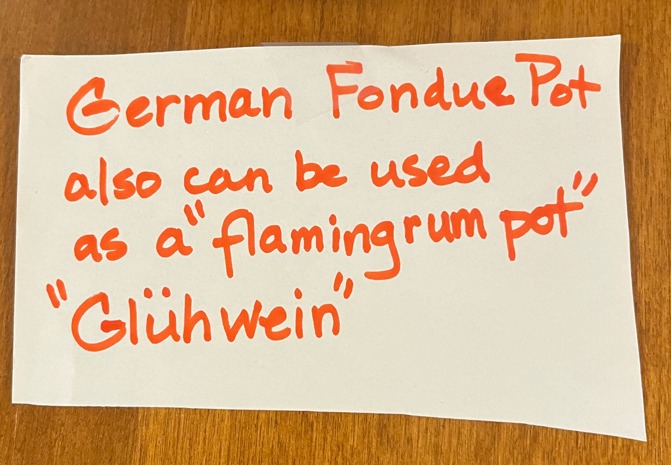 German Fondue Pot
also can be used
as a "flamingrum pot"
"Glühwein"